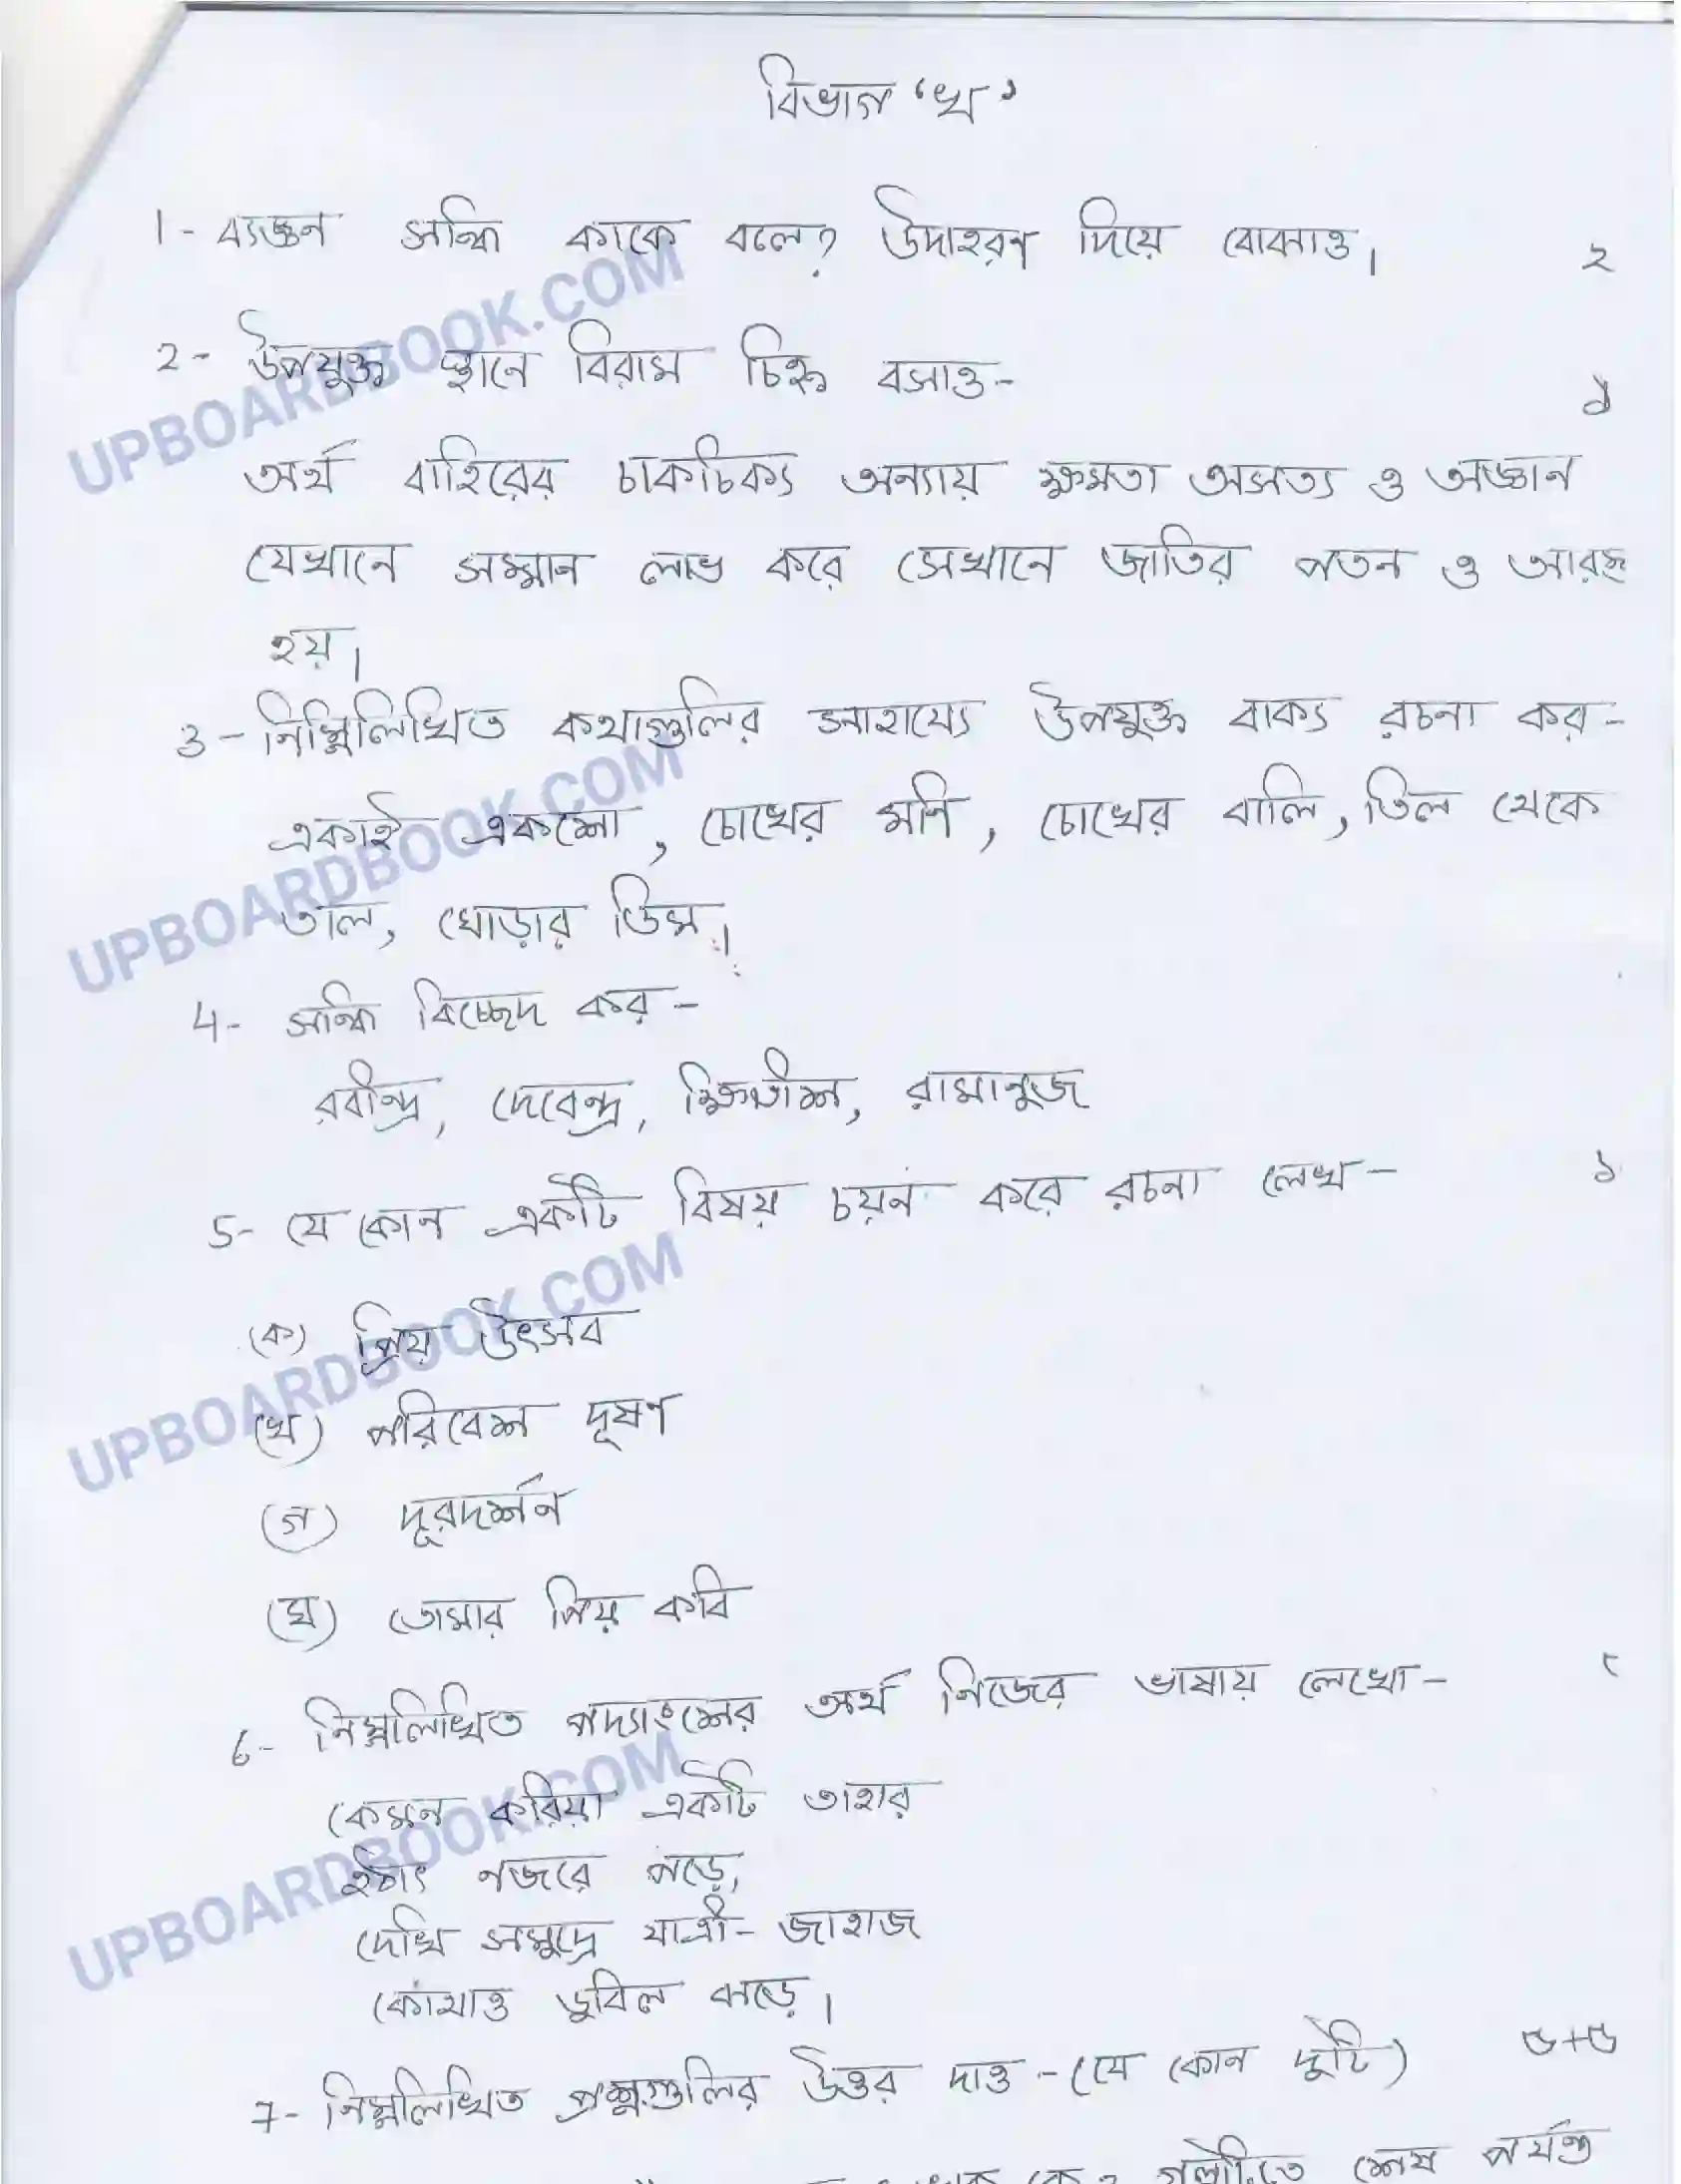 বিভাগ 'খ'
1- ব্যঞ্জন সন্ধি কাকে বলে? উদাহরণ দিয়ে বোঝাও। ২
2- উপযুক্ত স্থানে বিরাম চিহ্ন বসাও-
অর্থ বাহিরের চাকচিক্য অন্যায় ক্ষমতা অসত্য ও অজ্ঞান
যেখানে সম্মান লাভ করে সেখানে জাতির পতন ও আরম্ভ
হয়।
3- নিম্নিলিখিত কথাগুলির সাহায্যে উপযুক্ত বাক্য রচনা কর-
একাই একশো, চোখের মনি, চোখের বালি, তিল থেকে
তাল, ঘোড়ার ডিম।
4- সন্ধি বিচ্ছেদ কর-
রবীন্দ্র, দেবেন্দ্র, ক্ষিতীশ, রামানুজ
5- যে কোন একটি বিষয় চয়ন করে রচনা লেখ- ১
(ক) প্রিয় উৎসব
(খ) পরিবেশ দূষণ
(গ) দূরদর্শন
(ঘ) তোমার প্রিয় কবি
6- নিম্নলিখিত পদ্যাংশের অর্থ নিজের ভাষায় লেখো-
কেমন করিয়া একটি তাহার
হঠাৎ নজরে পড়ে,
দেখি সমুদ্রে যাত্রী- জাহাজ
কোথাও ডুবিল ঝড়ে।
7- নিম্নলিখিত প্রশ্নগুলির উত্তর দাও -(যে কোন দুটি) ৫+৫
গল্পটিতে শেষ পর্যন্ত
UPBOARDBOOK.COM
UPBOARDBOOK.COM
UPBOARDBOOK.COM
UPBOARDBOOK.COM